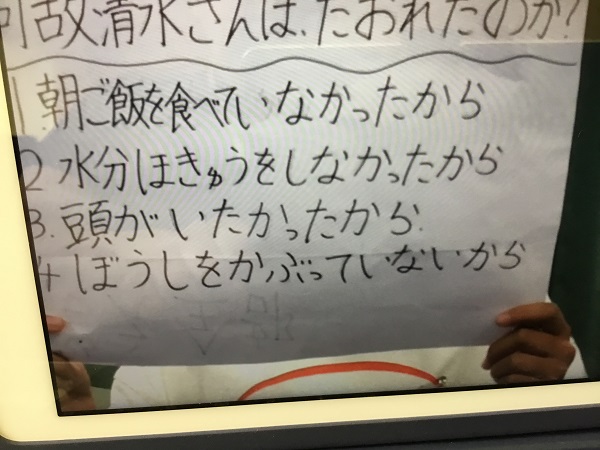 何故清水さんは、たおれたのか?
1 朝ご飯を食べていなかったから
2 水分ほきゅうをしなかったから
3. 頭がいたかったから.
4 ぼうしをかぶっていないから